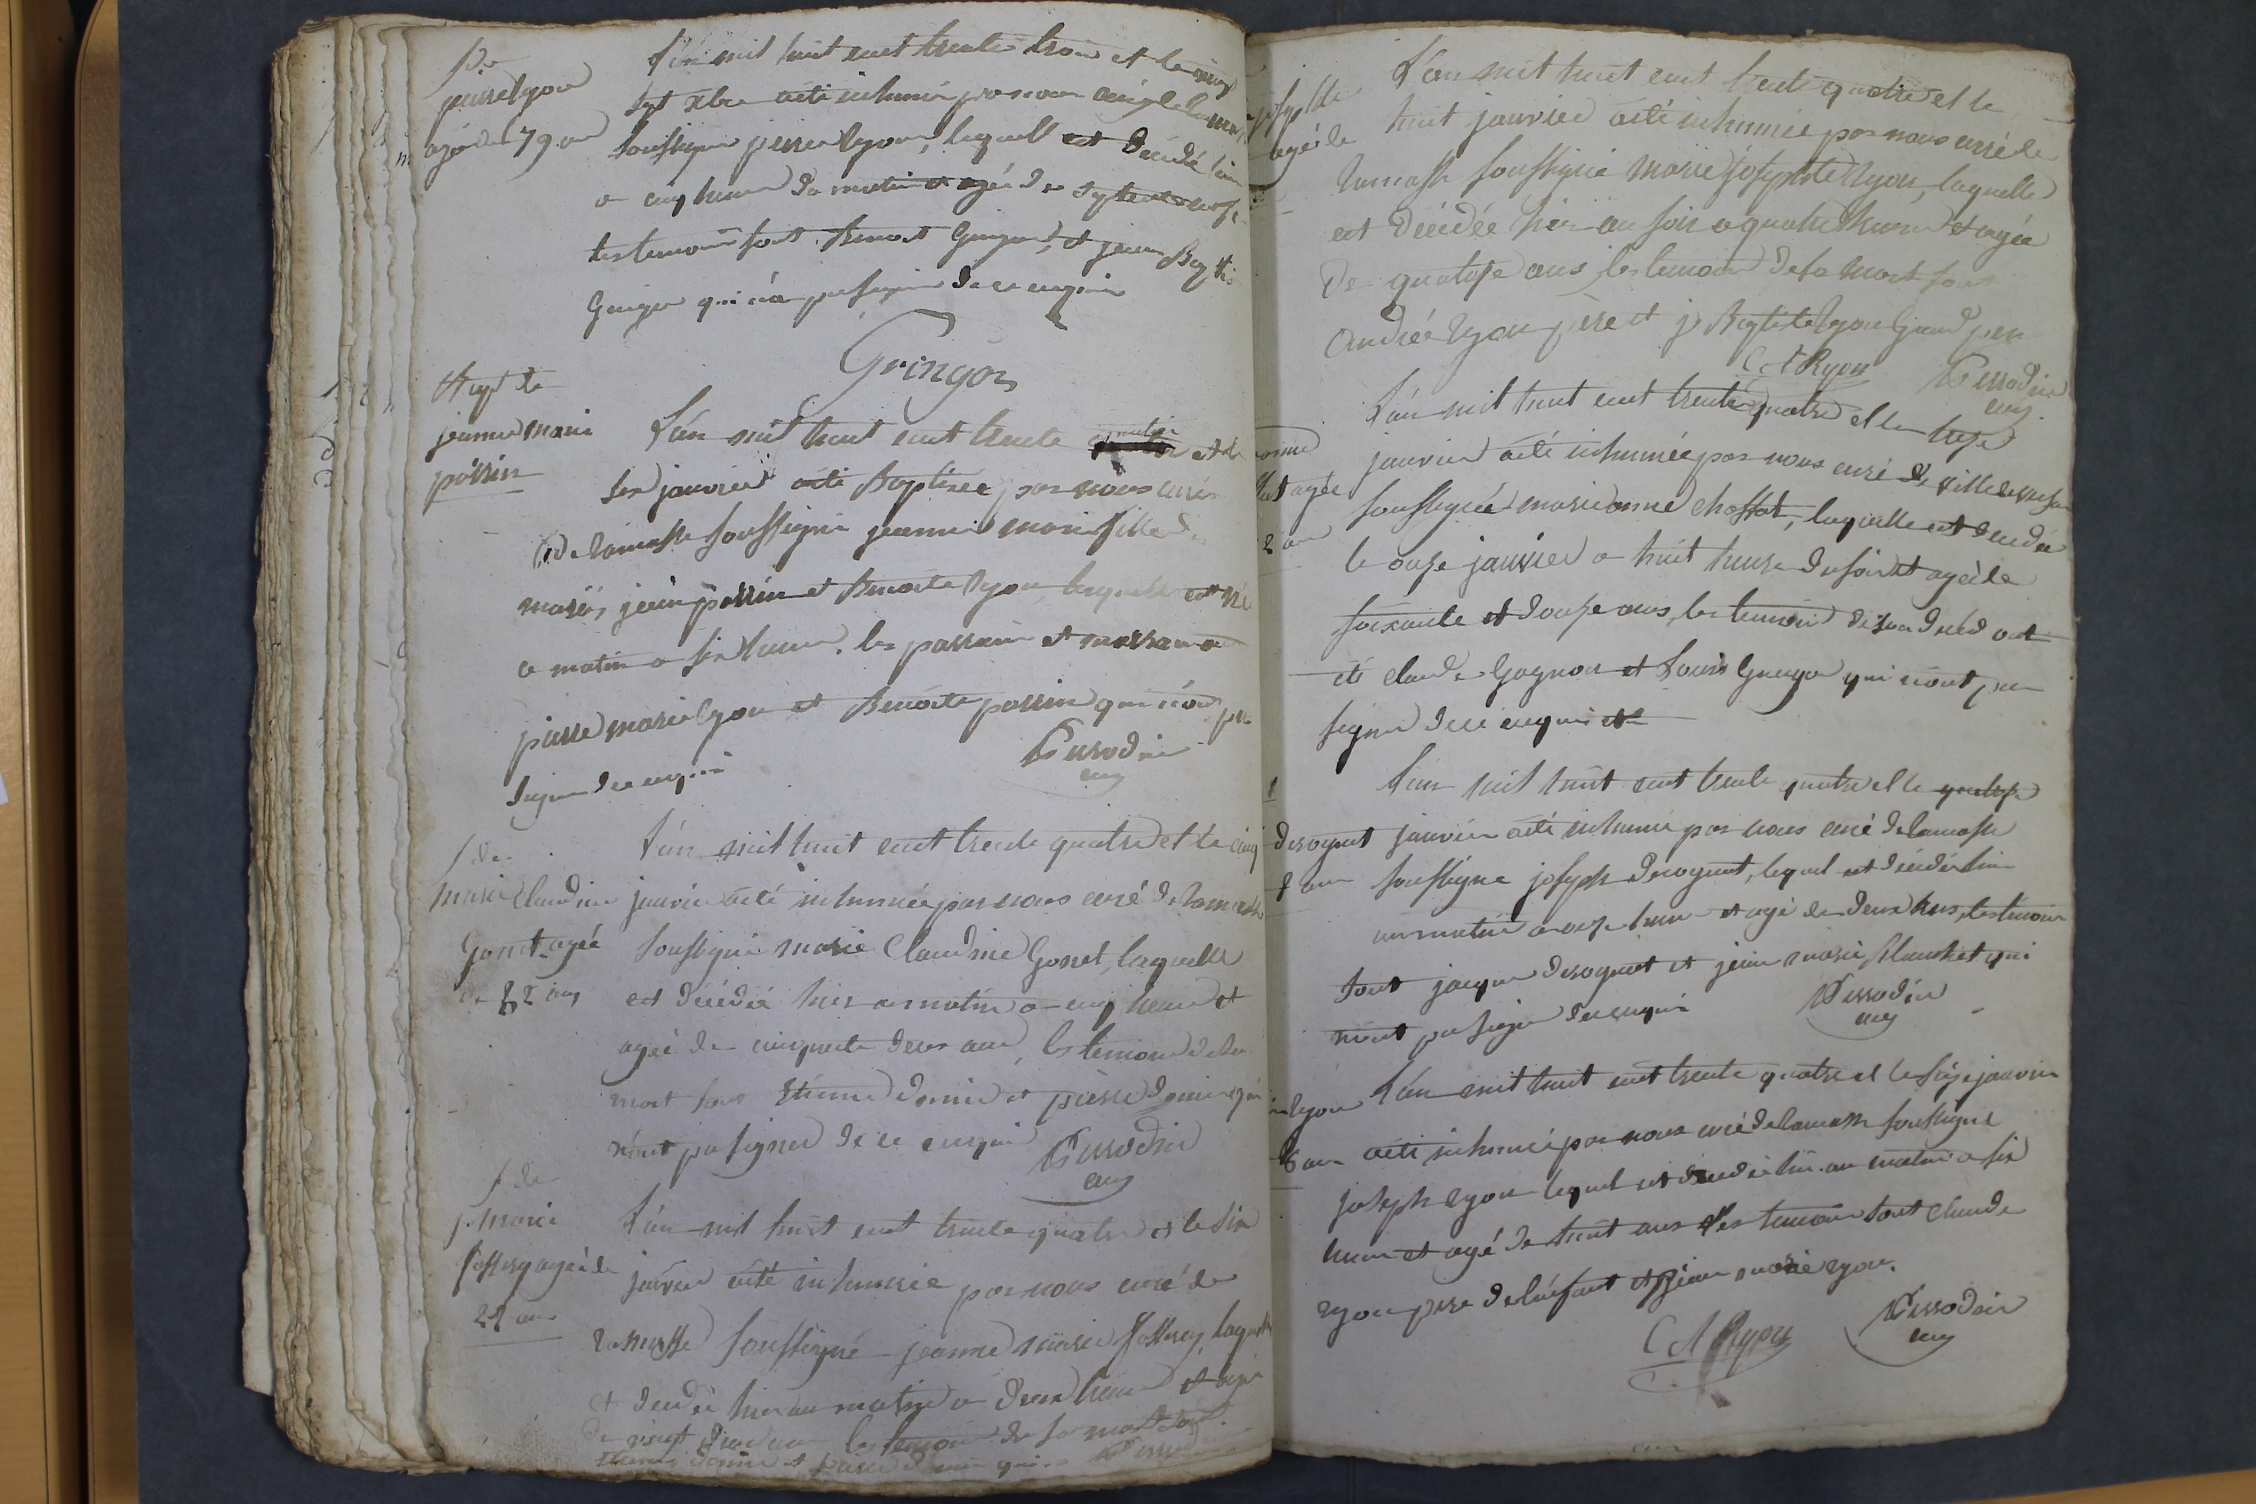 pierre Ryon
agé de 79 an
L'an mil huit cent trente trois et le vingt
sept xbre a été inhumé par nous curé de
soussigné pierre Ryon, lequel est décédé hier
a cinq heures du matin et agé de septante neuf
les temoins sont Benoit Gringoz, et jean Baptiste
Gringoz qui n'a pu signer de ce enquis
Gringoz
Bapt de
jeanne marie
possin
L'an mil huit cent trente quatre et le
six janvier a été Baptisée par nous curé
de ramasse soussigné jeanne marie fille des
mariés jean possin et Benoite Ryon, laquelle est née
ce matin a six heures. les parrain et marraine
pierre marie Ryon et Benoite possin qui n'ont pu
signer de ce enquis
Perrodin
curé
S. de
marie Claudine
Gonet agée
de 52 ans
L'an mil huit cent trente quatre et le cinq
janvier a été inhumée par nous curé de ramasse
soussigné marie Claudine Gonet, laquelle
est décédée hier au matin a cinq heures et
agée de cinquante deux ans, les temoins de sa
mort sont Etienne et pierre qui
n'ont pu signer de ce enquis
Perrodin
curé
S. de
j. marie
agée de
22 ans
L'an mil huit cent trente quatre et le six
janvier a été inhumée par nous curé de
ramasse soussigné jeanne marie laquelle
est décédée hier au matin a deux heures et agée
de vingt deux ans les temoins de sa mort sont
Etienne et pierre qui Perrodin
josephte
agée de
L'an mil huit cent trente quatre et le
huit janvier a été inhumée par nous curé de
ramasse soussigné marie josephte Ryon, laquelle
est décédée hier au soir a quatre heures et agée
de quatorze ans, les temoins de sa mort sont
Andrée Ryon père et j. Baptiste Ryon Grand pere
C A Ryon
Perrodin
curé
anne
agée
2 ans
L'an mil huit cent trente quatre et le treize
janvier a été inhumée par nous curé de
soussigné marie anne chossat, laquelle est décédée
le onze janvier a huit heures du soir et agée de
soixante et douze ans, les temoins de son décéd ont
été claude Gagnon et Louis Gringoz qui n'ont pu
signer de ce enquis et
desoignet
2 ans
L'an mil huit cent trente quatre et le quatorze
janvier a été inhumé par nous curé de ramasse
soussigné joseph desoignet, lequel est décédé hier
au matin a onze heures et agé de deux ans, les temoins
sont jacques desoignet et jean marie Blanchet qui
n'ont pu signer de ce enquis
Perrodin
curé
Ryon
8 ans
L'an mil huit cent trente quatre et le seize janvier
a été inhumé par nous curé de ramasse soussigné
joseph Ryon lequel est décédé hier au matin a six
heures et agé de huit ans les temoins sont claude
Ryon pere de l'enfant et jean marie Ryon.
C A Ryon
Perrodin
curé